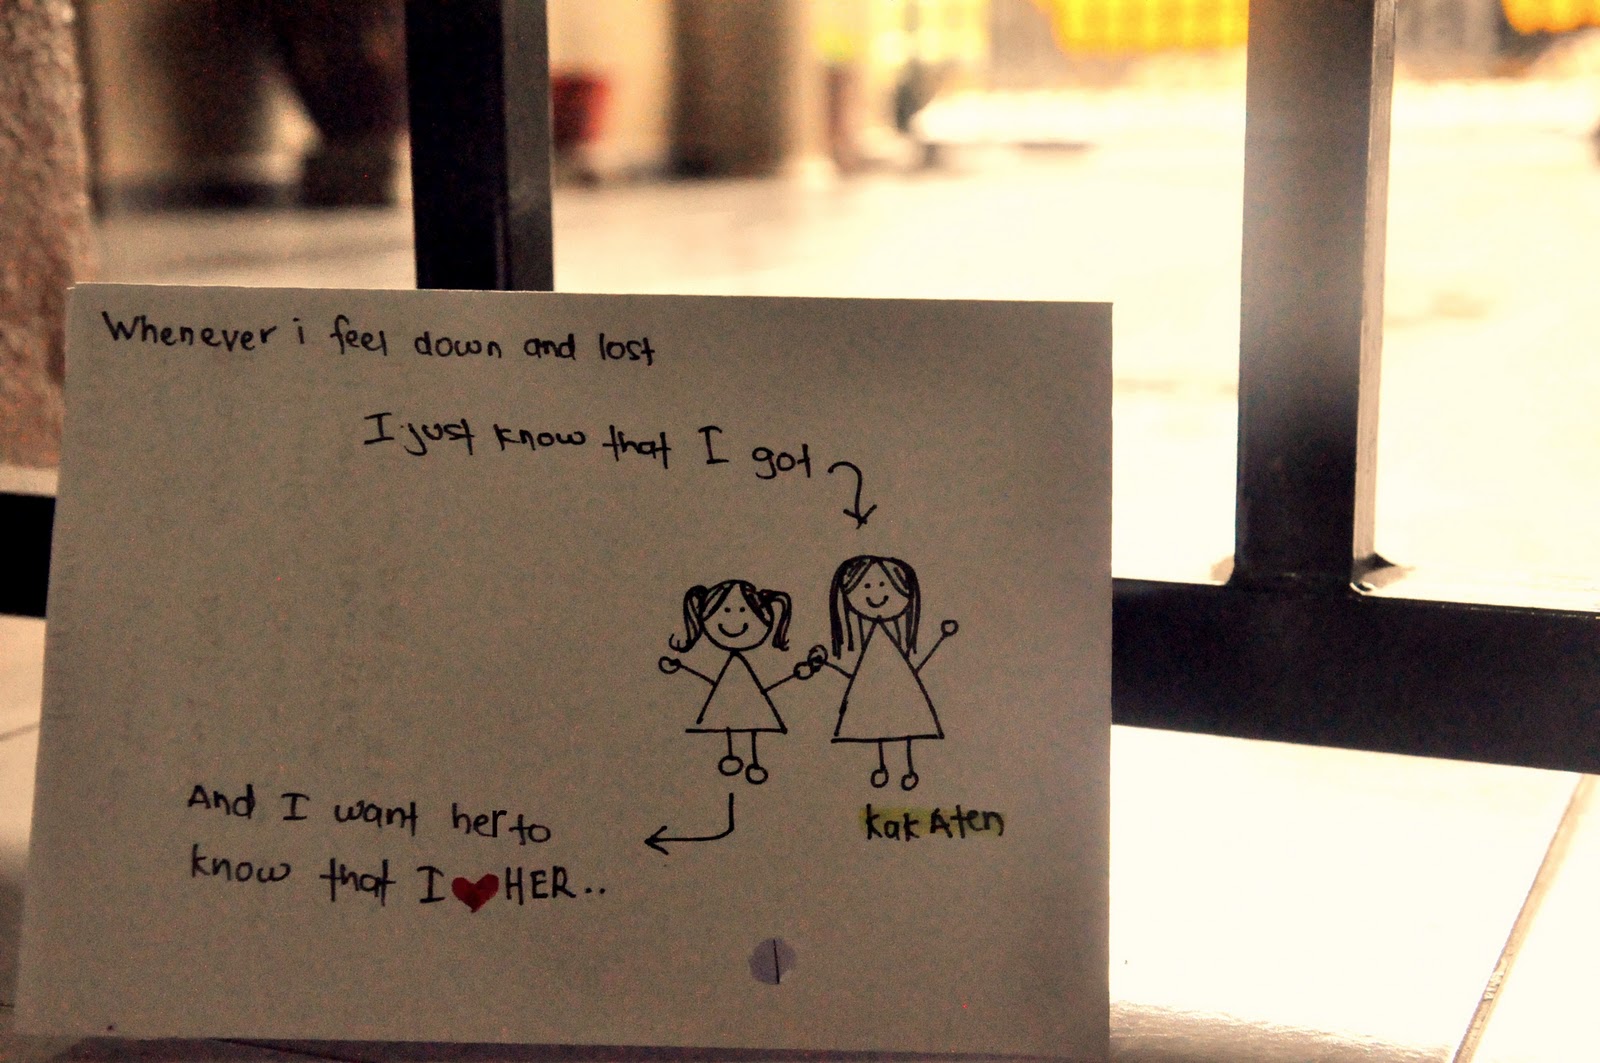 Whenever i feel down and lost
I just know that I got
kak Aten
And I want her to
know that I ♥ HER..